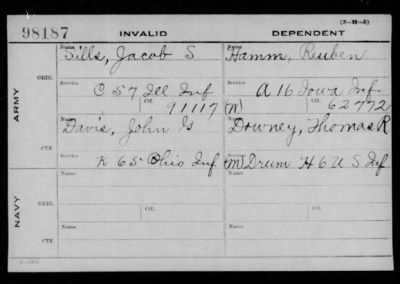 (3-H-5)
98187 INVALID DEPENDENT
Name Name
Sills, Jacob S Hamm, Reuben
ORIG.
Service Service
C 57 Ill Inf A 16 Iowa Inf
Ctf. Ctf.
91117 (M) 62772
ARMY
Name Name
Davis, John G Downey, Thomas R
CTF.
Service Service
K 65 Ohio Inf (M) Drum H 6 U S Inf
Name Name
ORIG.
Ctf. Ctf.
NAVY
Name Name
CTF.